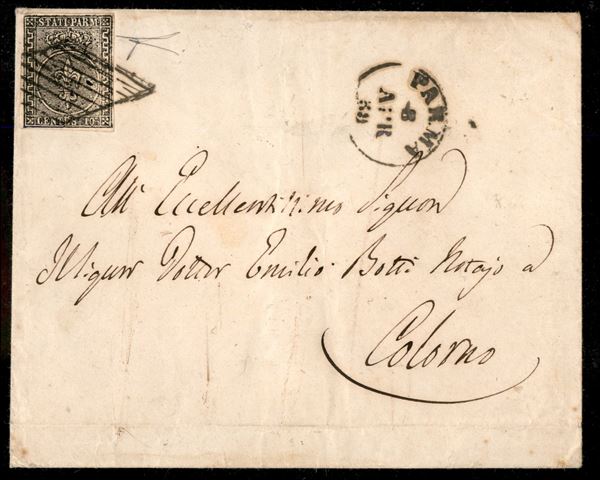 STATI PARM.
CENTES. 10
PARMA
8
APR
59
All' Eccellentissimo Signor
Il Signor Dottor Emilio Botti Notajo a
Colorno